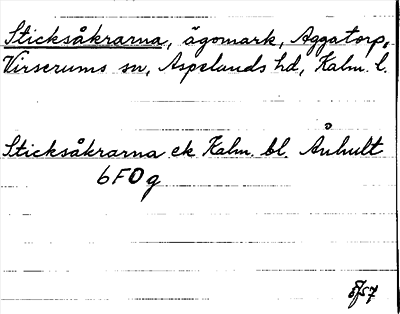 Sticksåkrarna, ägomark, Aggatorp,
Virserums sn, Aspelands hd, Kalm. l.
Sticksåkrarna ek Kalm. bl. Ånhult
6F0g